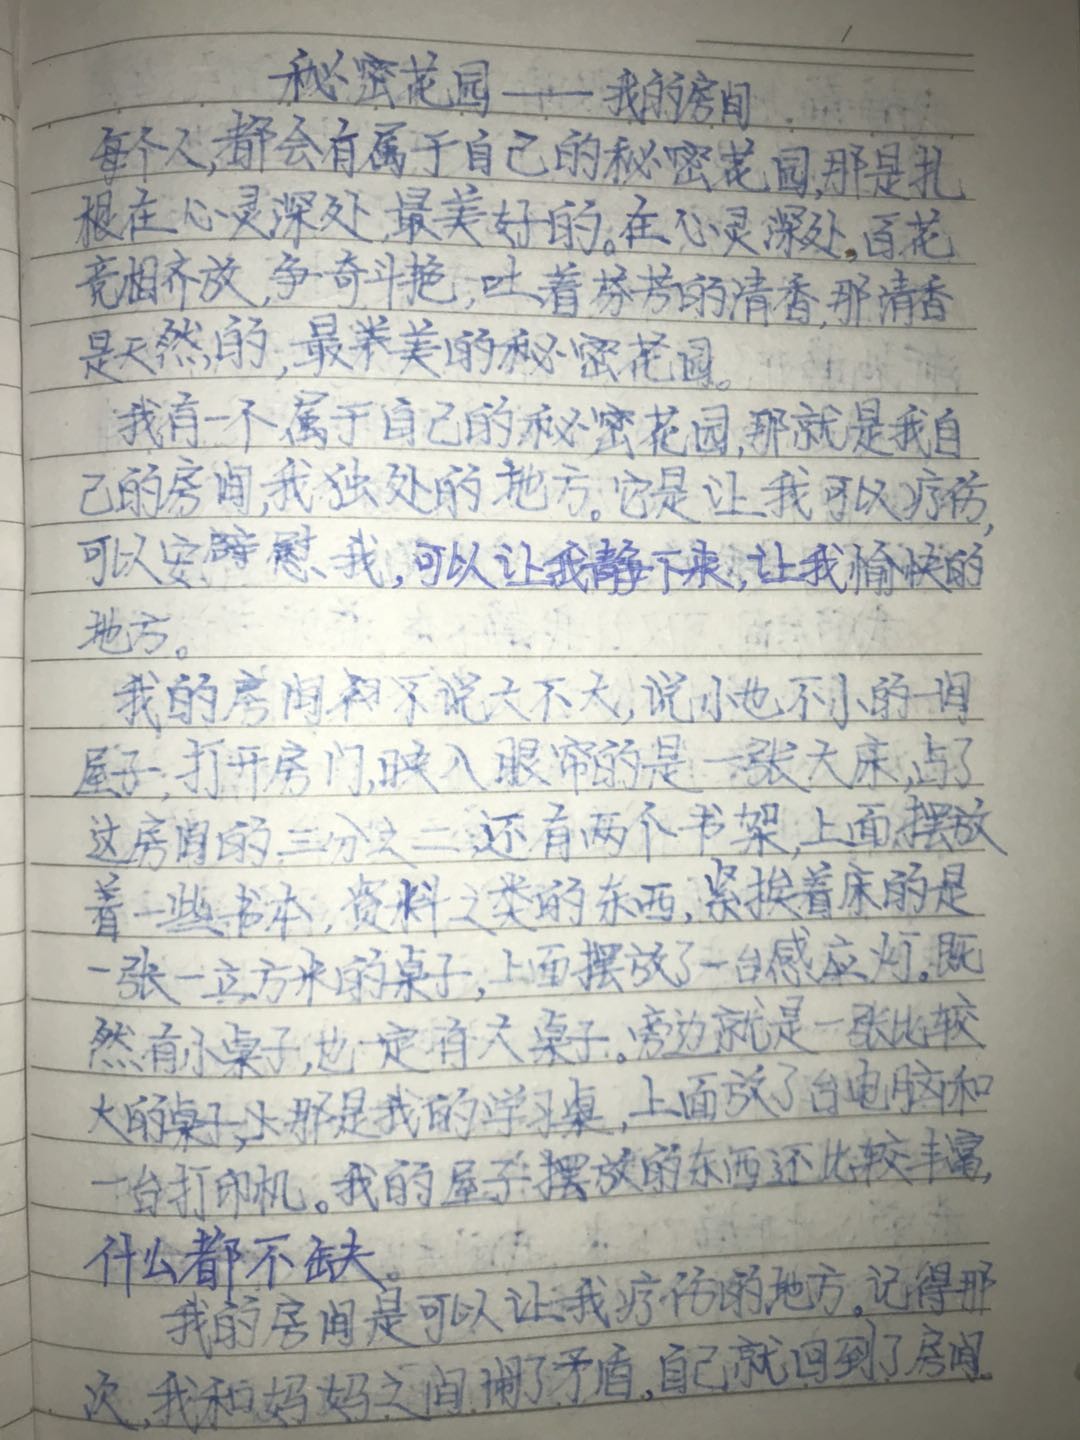 秘密花园——我的房间
每个人,都会有属于自己的秘密花园,那是扎
根在心灵深处,最美好的。在心灵深处,百花
竞相齐放,争奇斗艳,吐着芬芳的清香,那清香
是天然的,最美的秘密花园。
我有一个属于自己的秘密花园,那就是我自
己的房间,我独处的地方。它是让我可以疗伤,
可以安慰我,可以让我静下来,让我愉快的
地方。
我的房间说大不大,说小也不小的一间
屋子,打开房门,映入眼帘的是一张大床,占了
这房间的三分之二还有两个书架,上面摆放
着一些书本,资料之类的东西,紧挨着床的是
一张一立方米的桌子,上面摆放了一台感应灯。既
然有小桌子,也一定有大桌子。旁边就是一张比较
大的桌子,那是我的学习桌,上面放了台电脑和
一台打印机。我的屋子摆放的东西还比较丰富,
什么都不缺。
我的房间是可以让我疗伤的地方。记得那
次,我和妈妈之间闹了矛盾,自己就回到了房间